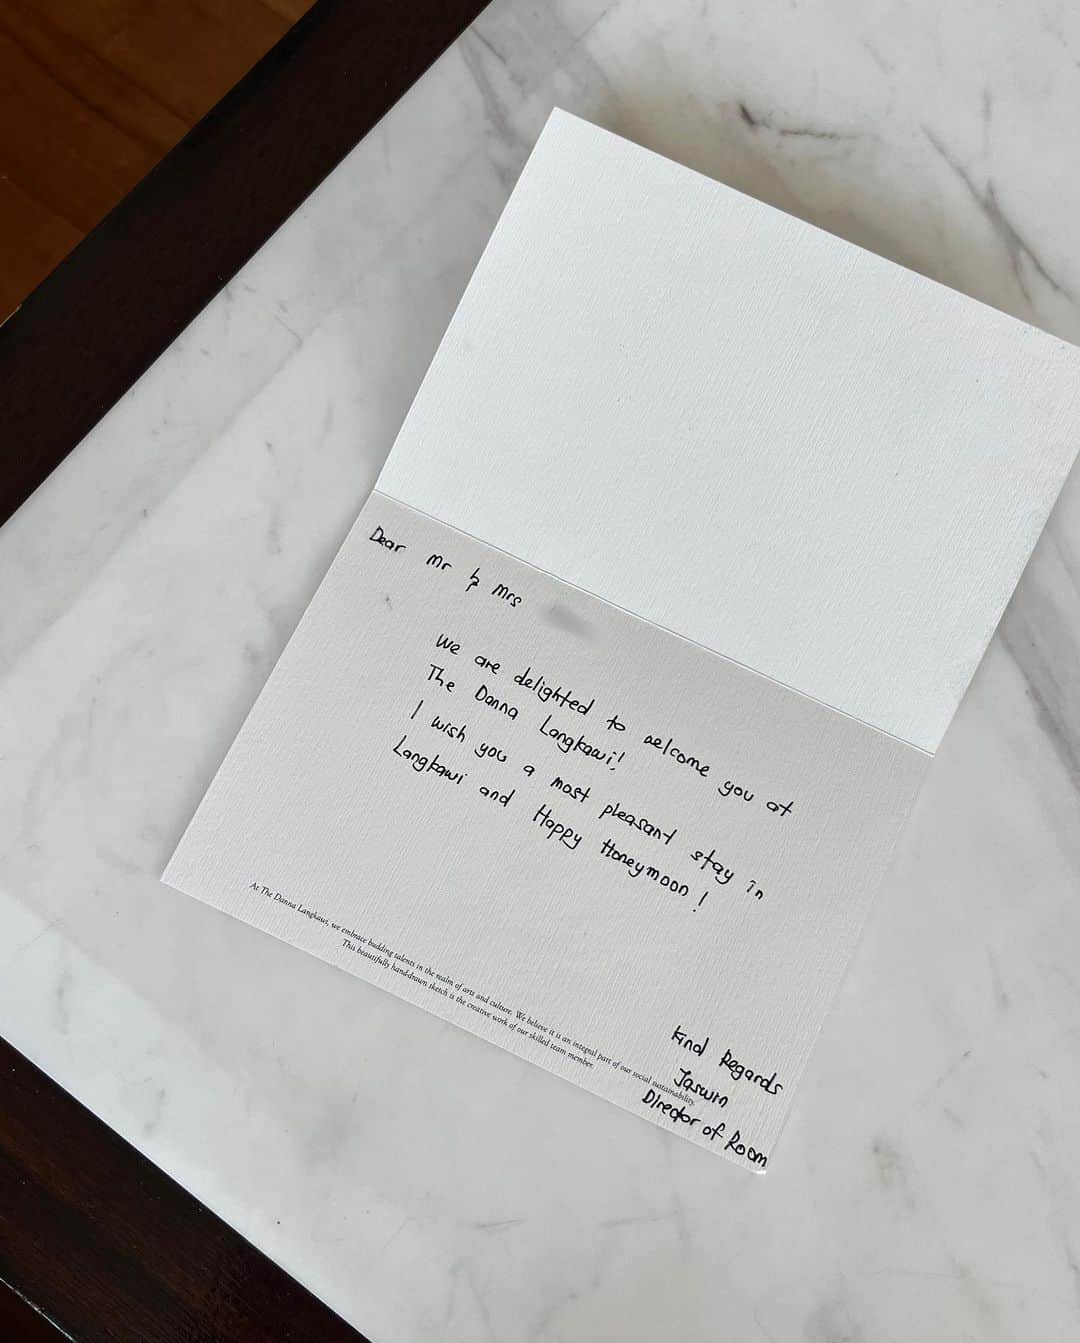 Dear Mr & Mrs
We are delighted to welcome you at
The Danna Langkawi!
I wish you a most pleasant stay in
Langkawi and Happy Honeymoon!
At The Danna Langkawi, we embrace budding talents in the realm of arts and culture. We believe it is an integral part of our social sustainability.
This beautifully hand-drawn sketch is the creative work of our skilled team member.
Kind Regards
Jaswin
Director of Room